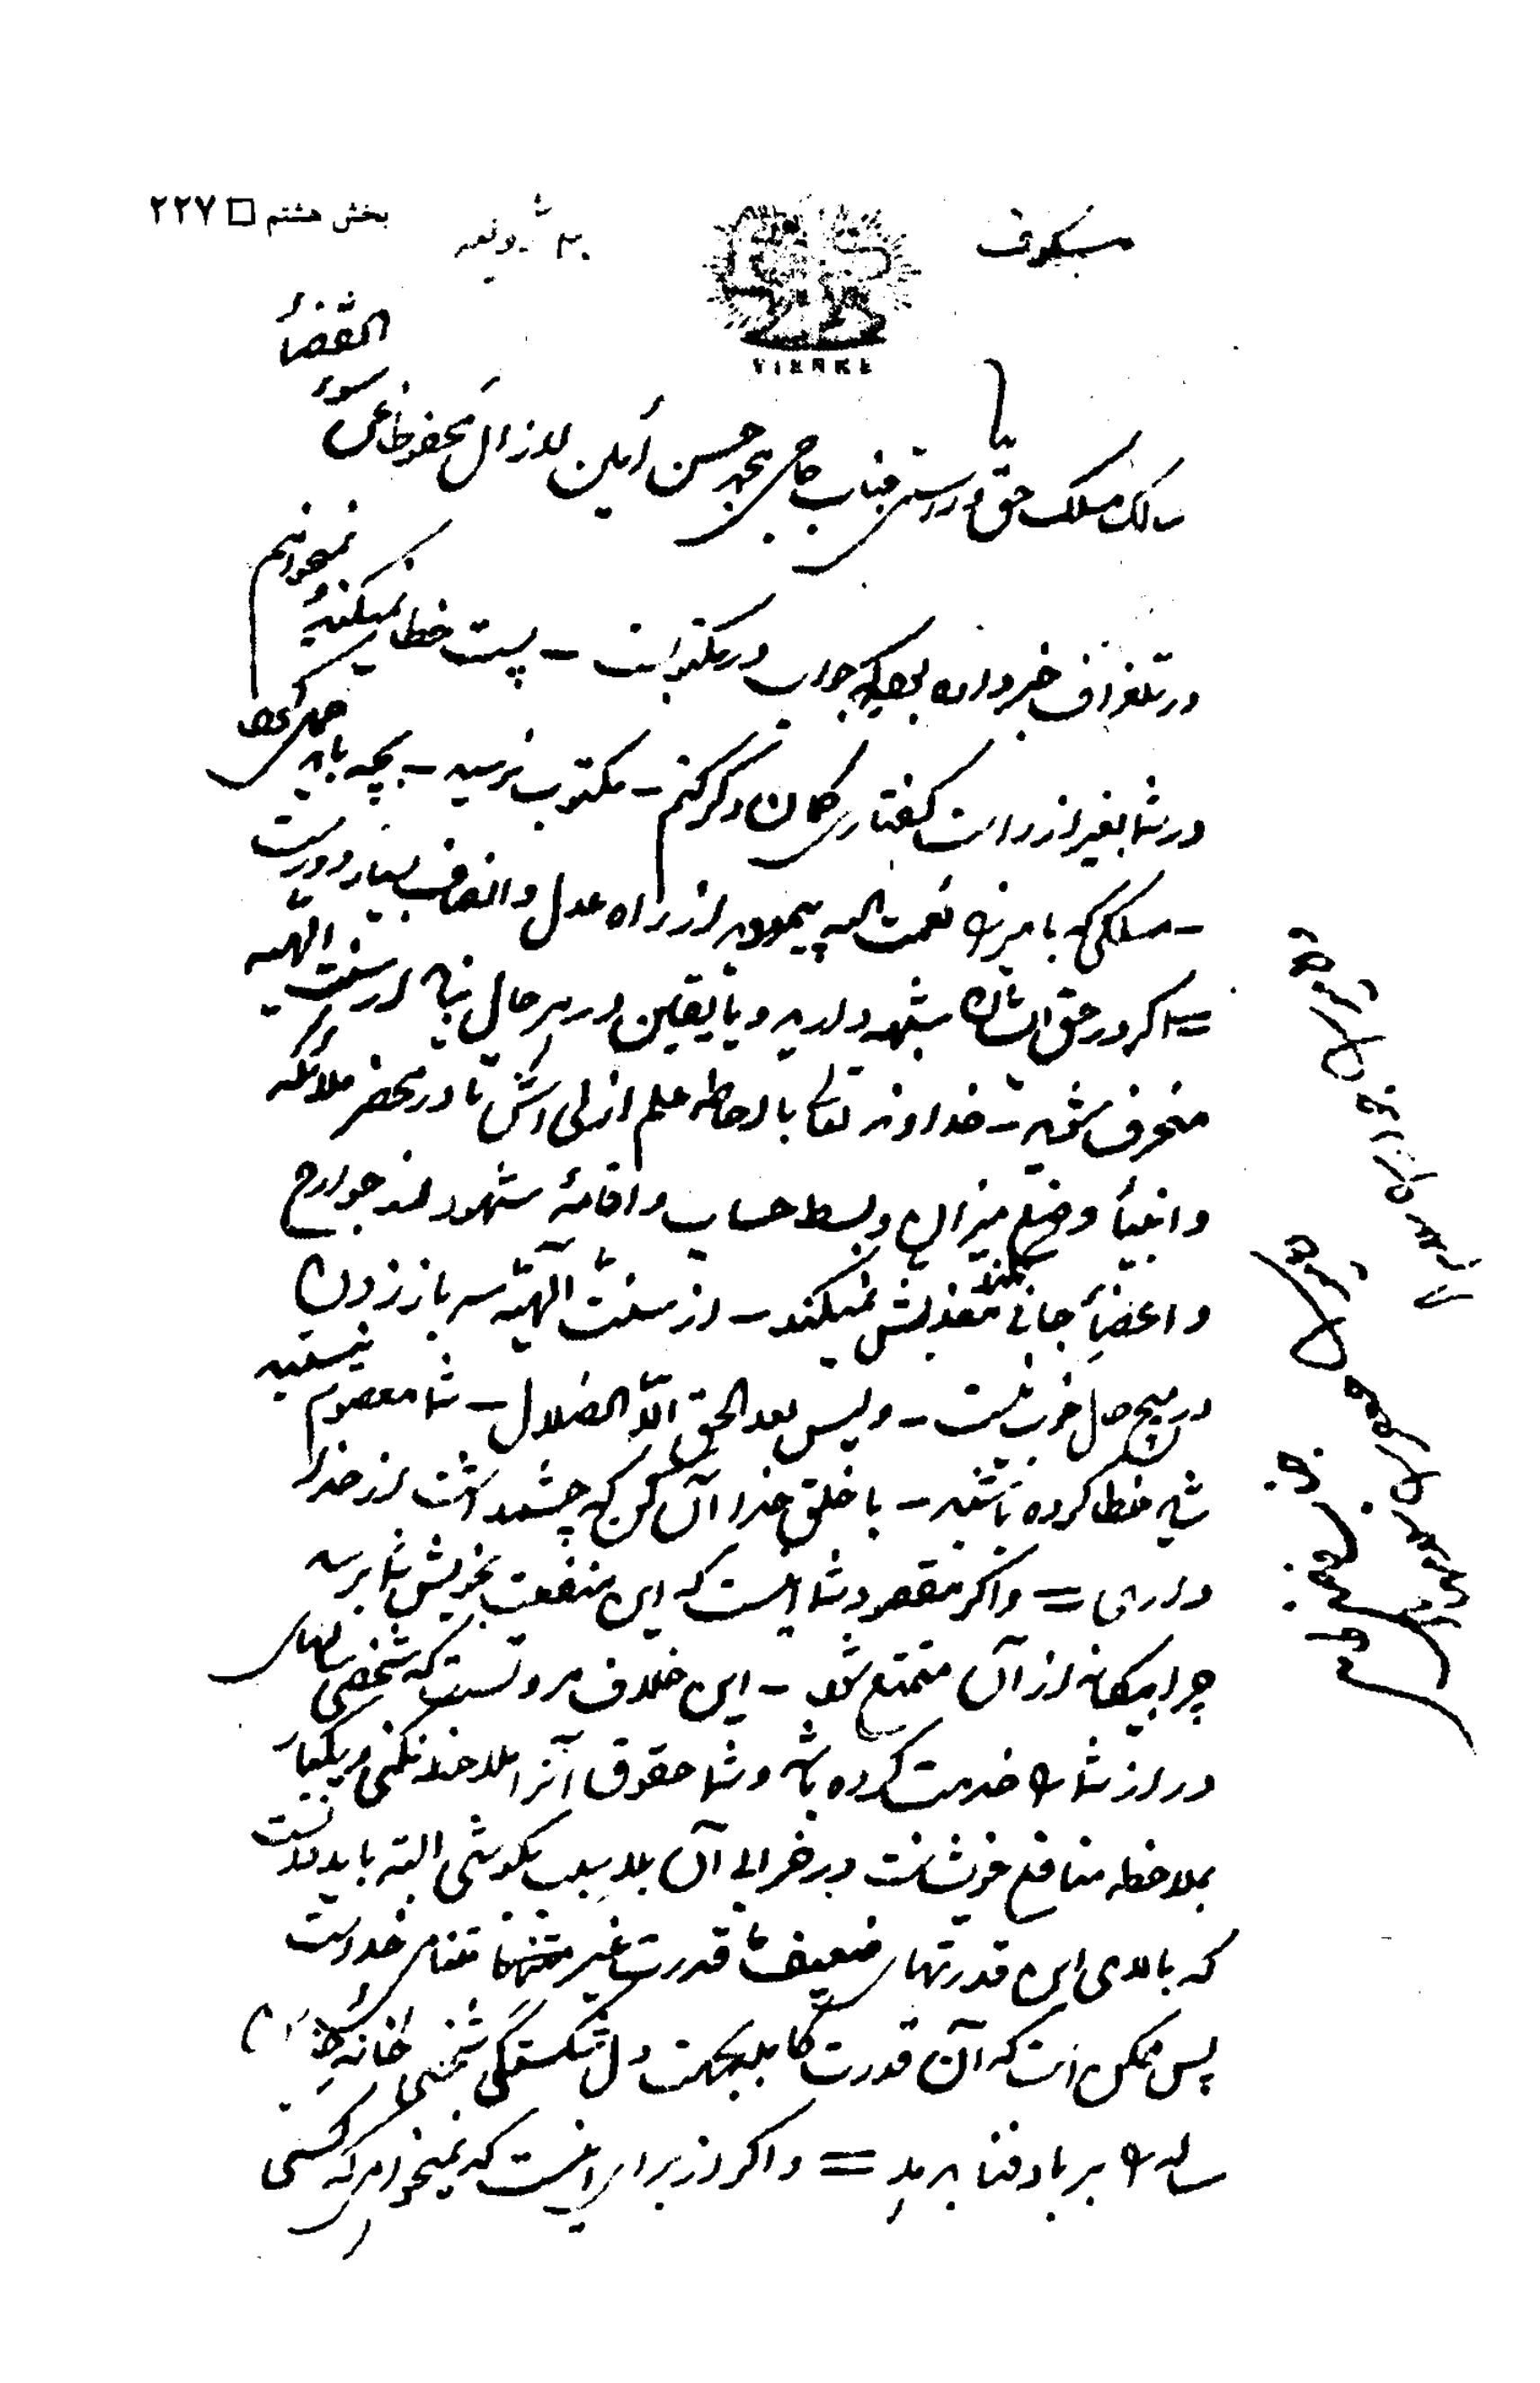 بخش هشتم □ ۲۲۷
مسکوف
۳۰ ژوئیه
VIENNE
سالک مسلک حق و راستی جناب حاجی محمد حسن امین لازال محفوظا عن سوء القضاء
در تلغراف خبر داده بودید که جواب در مکتوبست – پست خطا نمیکند نمیتوانم
در شما بغیر از راست گفتاری گمان دگر کنم – مکتوب نرسید – بچه باید حمل کرد
– مسلکی که با میرزا نعمت الله پیمودید از راه عدل و انصاف بسیار دورست
= اگر در حق ایشان شبهه دارید و یا یقین در هر حال نباید از سنت الهیه
منحرف شوید – خداوند تعالی با احاطه علم ازلی اش تا در محضر ملائکه
و انبیأ وضع میزان و بسط حساب و اقامهٔ شهود از جوارح
و اعضاء جانی نکند تعذیبش نمیکند – از سنت الهیه سر باز زدن
در هیچ حال خوب نیست – و لیس بعد الحق الا الضلال – شما معصوم نیستید
شاید خطا کرده باشید – با خلق خدا آن کن که چشمداشت از خدا
داری = و اگر مقصود شما اینست که این منفعت بخویش شما برسد
چرا بیگانه از آن متمتع شود – این خلاف مروتست که شخصی سالهای
دراز شما را خدمت کرده باشد و شما حقوق آنرا ملاحظه نکنی و یکبار
بملاحظه منافع خویشانت در خرابی آن بلا سبب بکوشی البته باید دانست
که بالای این قدرتهای ضعیف ما قدرت غیر متناهی خداست
پس ممکن است که آن قدرت کامله بجهت دل شکستگی شخصی خانه
ساله را بر باد فنا بدهد = و اگر از برای اینست که نمیخواهی که کسی